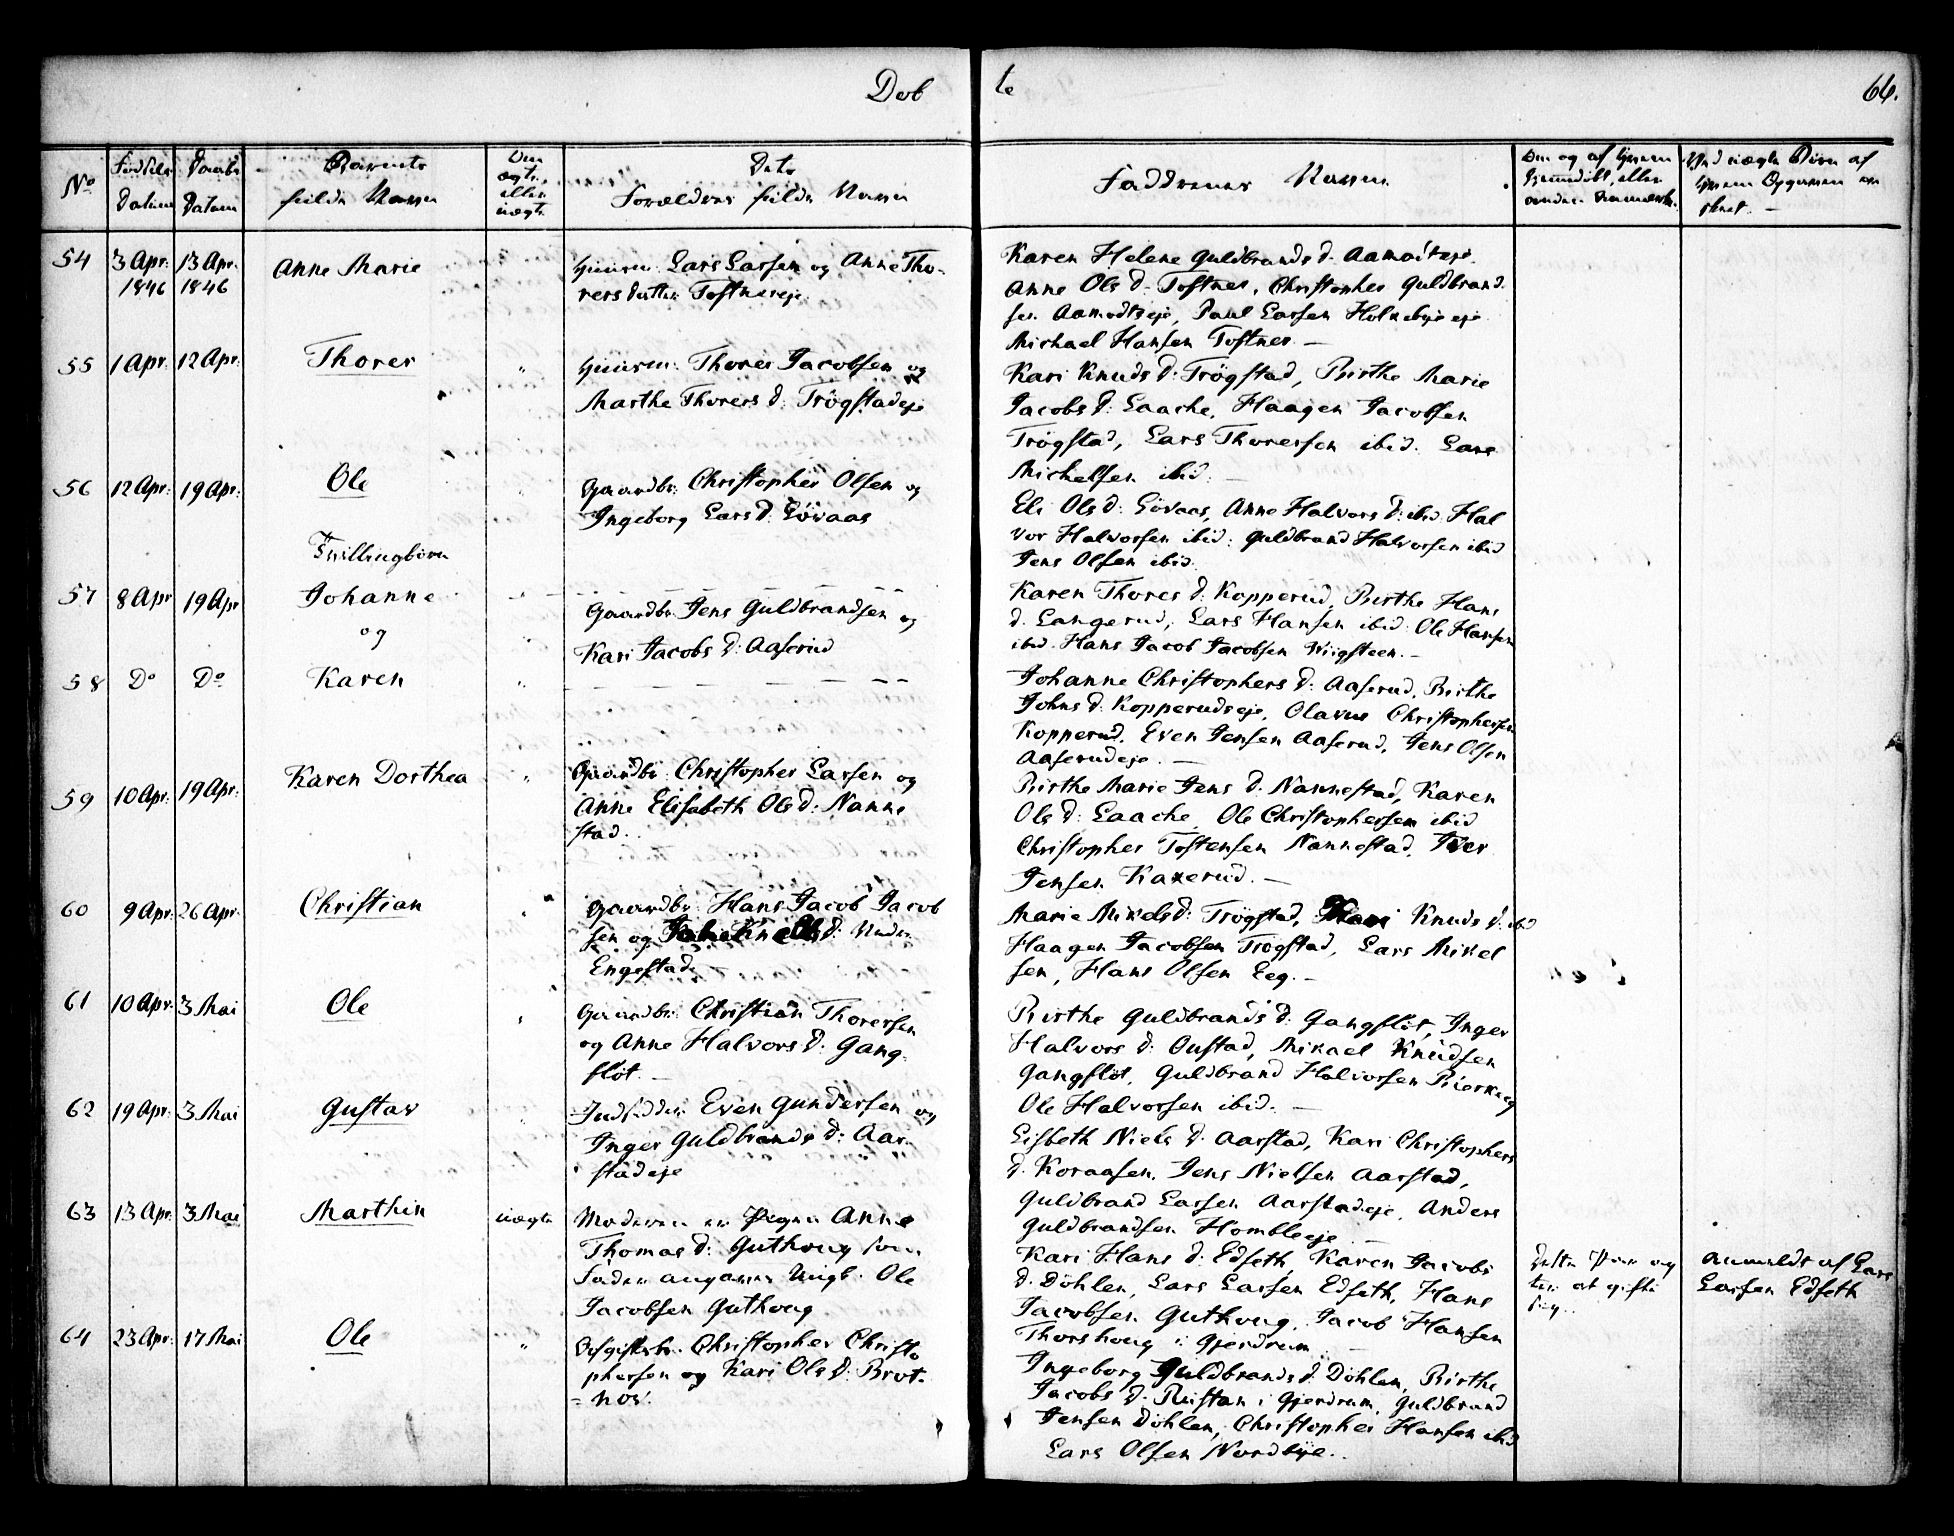 Døb
te
66.
No
Fødsels Datum
Daabs Datum
Barnets fulde Navn
Om ægte, eller uægte
Dets Forældres fulde Navn
Faddernes Navne
54 3 Apr: 1846 13 Apr. 1846 Anne Marie
Huusm: Lars Larsen og Anne Tho-
rersdatter Toftnereje
Karen Helene Guldbrands d. Aamodteje.
Anne Ols d. Toftner, Christopher Guldbrand
sen Aamodteje, Paul Larsen Holkebyeeje
Michael Hansen Toftner. —
55 1 Apr: 12 Apr. Thorer "
Huusm: Thorer Jacobsen og
Marthe Thorers d: Trögstadeje
Kari Knuds d: Trögstad, Birthe Marie
Jacobs d: Laache, Haagen Jacobsen
Trögstad, Lars Thorersen ibid. Lars
Michelsen ibid. —
56 12 Apr: 19 Apr: Ole
Gaardbr: Christopher Olsen og
Ingeborg Lars d: Lövaas
Eli Ols d: Lövaas, Anne Halvors d: ibid. Hal
vor Halvorsen ibid: Guldbrand Halvorsen ibid
Jens Olsen ibid.
Tvillingbörn
57 8 Apr 19 Apr Johanne
og
Gaardbr: Jens Guldbrandsen og
Kari Jacobs d: Aaserud
Karen Thores d: Kopperud, Birthe Hans
d. Langerud, Lars Hansen ibid. Ole Hansen
ibid. Hans Jacob Jacobsen Wiigsteen. —
58 Do Do Karen "
Johanne Christophers d: Aaserud, Birthe
Johns d: Kopperudseje, Olavus Christophersen
Kopperud. Even Jensen Aaserud, Jens Olsen
Aaserudeje. —
59 10 Apr: 19 Apr: Karen Dorthea "
Gaardbr: Christopher Larsen og
Anne Elisabeth Ols d: Nanne
stad.
Birthe Marie Jens d: Nannestad, Karen
Ols d: Laache, Ole Christophersen ibid
Christopher Tostensen Nannestad. Iver
Jensen Kaxerud. —
60 9 Apr: 26 Apr. Christian
Gaardbr: Hans Jacob Jacob
sen og d: Nedre
Engestad. —
Marie Mikels d: Trögstad, Kari Knuds d: ibid
Haagen Jacobsen Trögstad, Lars Mikel
sen, Hans Olsen Eeg. —
61 10 Apr: 3 Mai Ole
Gaardbr: Christian Thorersen
og Anne Halvors d: Gang-
flöt. —
Birthe Guldbrands d: Gangflöt, Inger
Halvors d: Oustad, Mikael Knudsen
Gangflöt, Guldbrand Halvorsen Bierkeeg
Ole Halvorsen ibid. —
62 19 Apr: 3 Mai Gustav
Indsidder Even Gundersen og
Inger Guldbrands d: Aar-
stadeje
Lisbeth Niels d. Aarstad, Kari Christophers
d. Koraasen. Jens Nielsen Aarstad,
Guldbrand Larsen Aarstadeje. Anders
Guldbrandsen Hombleeje —
63 13 Apr: 3 Mai Marthin uægte
Moderen er Pigen Anne
Thomas d: Guthoug som
Fader angaves Ungk. Ole
Jacobsen Guthoug
Kari Hans d: Edseth, Karen Jacobs
d: Döhlen, Lars Larsen Edseth, Hans
Jacobsen Guthoug, Jacob Hansen
Thorshoug i Gjerdrum
at gifte
sig.
Anmeldt af Lars
Larsen Edseth
64 23 Apr: 17 Mai Ole "
Christopher Christo
phersen og Kari Ols d: Brot-
nos.
Ingeborg Guldbrands d. Döhlen, Birthe
Jacobs d. Rustan i Gjerdrum, Guldbrand
Jensen Döhlen, Christopher Hansen ibid
Lars Olsen Nordbye.